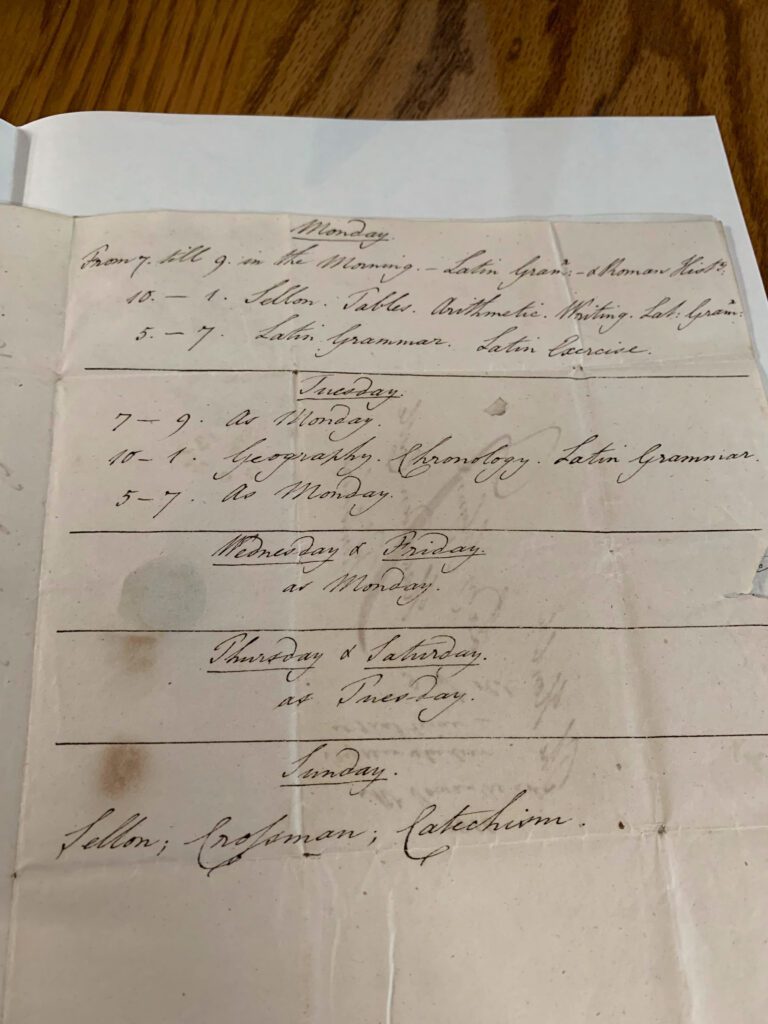 Monday.
From 7. till 9. in the Morning. – Latin Gram: – & Roman Hist.y:
10. – 1. Sellon. Tables. Arithmetic. Writing. Lat: Gram:
5. – 7. Latin Grammar. Latin Exercise.
Tuesday.
7 – 9. As Monday.
10 – 1. Geography. Chronology. Latin Grammar.
5 – 7. As Monday.
Wednesday & Friday.
as Monday.
Thursday & Saturday.
as Tuesday.
Sunday.
Sellon; Croſsman; Catechism.